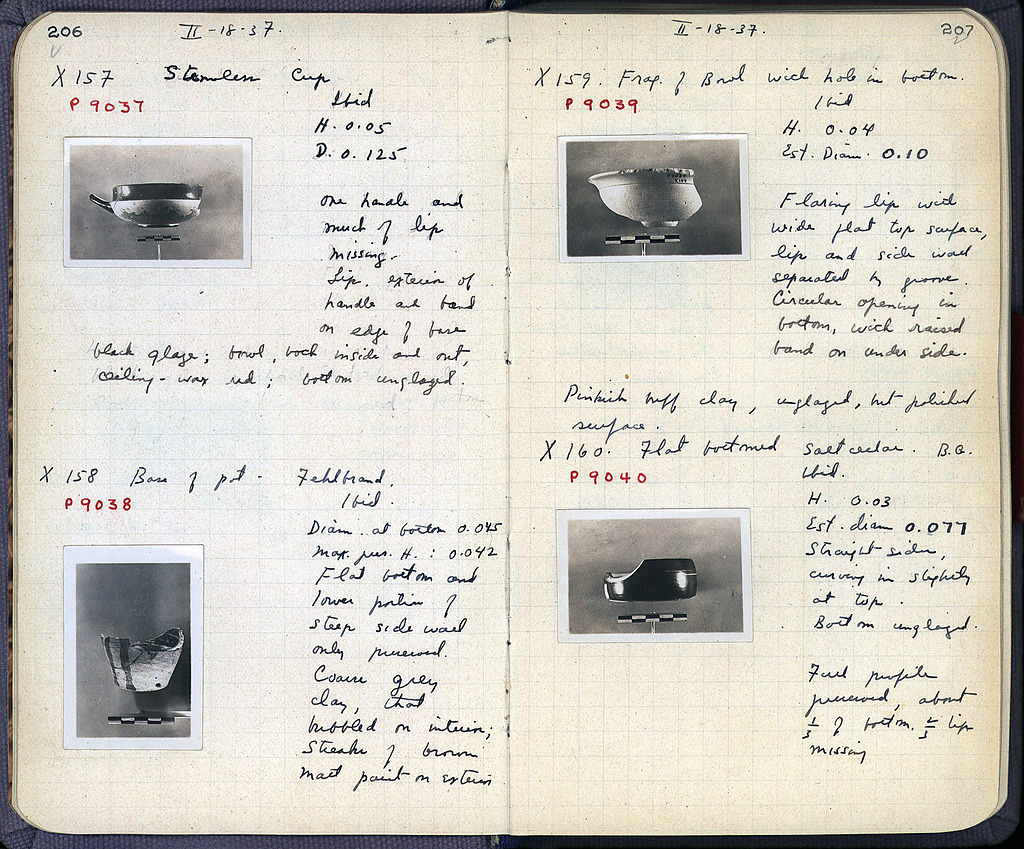 206
II-18-37.
X 157 Stemless Cup
P 9037
Ibid
H. 0.05
D. 0.125
one handle and
much of lip
missing.
Lip, exterior of
handle and band
on edge of base
black glaze; bowl, both inside and out,
ceiling-wax red; bottom unglazed.
X 158 Base of pot. Fehlbrand.
P 9038
Ibid.
Diam. at bottom 0.045
Max. pres. H. : 0.042
Flat bottom and
lower portion of
steep side wall
only preserved.
Coarse grey
clay, that
bubbled on interior;
Streaks of brown
matt paint on exterior
II-18-37.
207
X 159. Frag. of Bowl with hole in bottom.
P 9039
Ibid
H. 0.04
Est. Diam. 0.10
Flaring lip with
wide flat top surface,
lip and side wall
separated by groove.
Circular opening in
bottom, with raised
band on under side.
Pinkish buff clay, unglazed, but polished
surface.
X 160. Flat bottomed Saltcellar. B.G.
P 9040
Ibid.
H. 0.03
Est. diam 0.077
Straight sides,
curving in slightly
at top.
Bottom unglazed.
Full profile
preserved, about
1/3 of bottom. 2/3 lip
missing